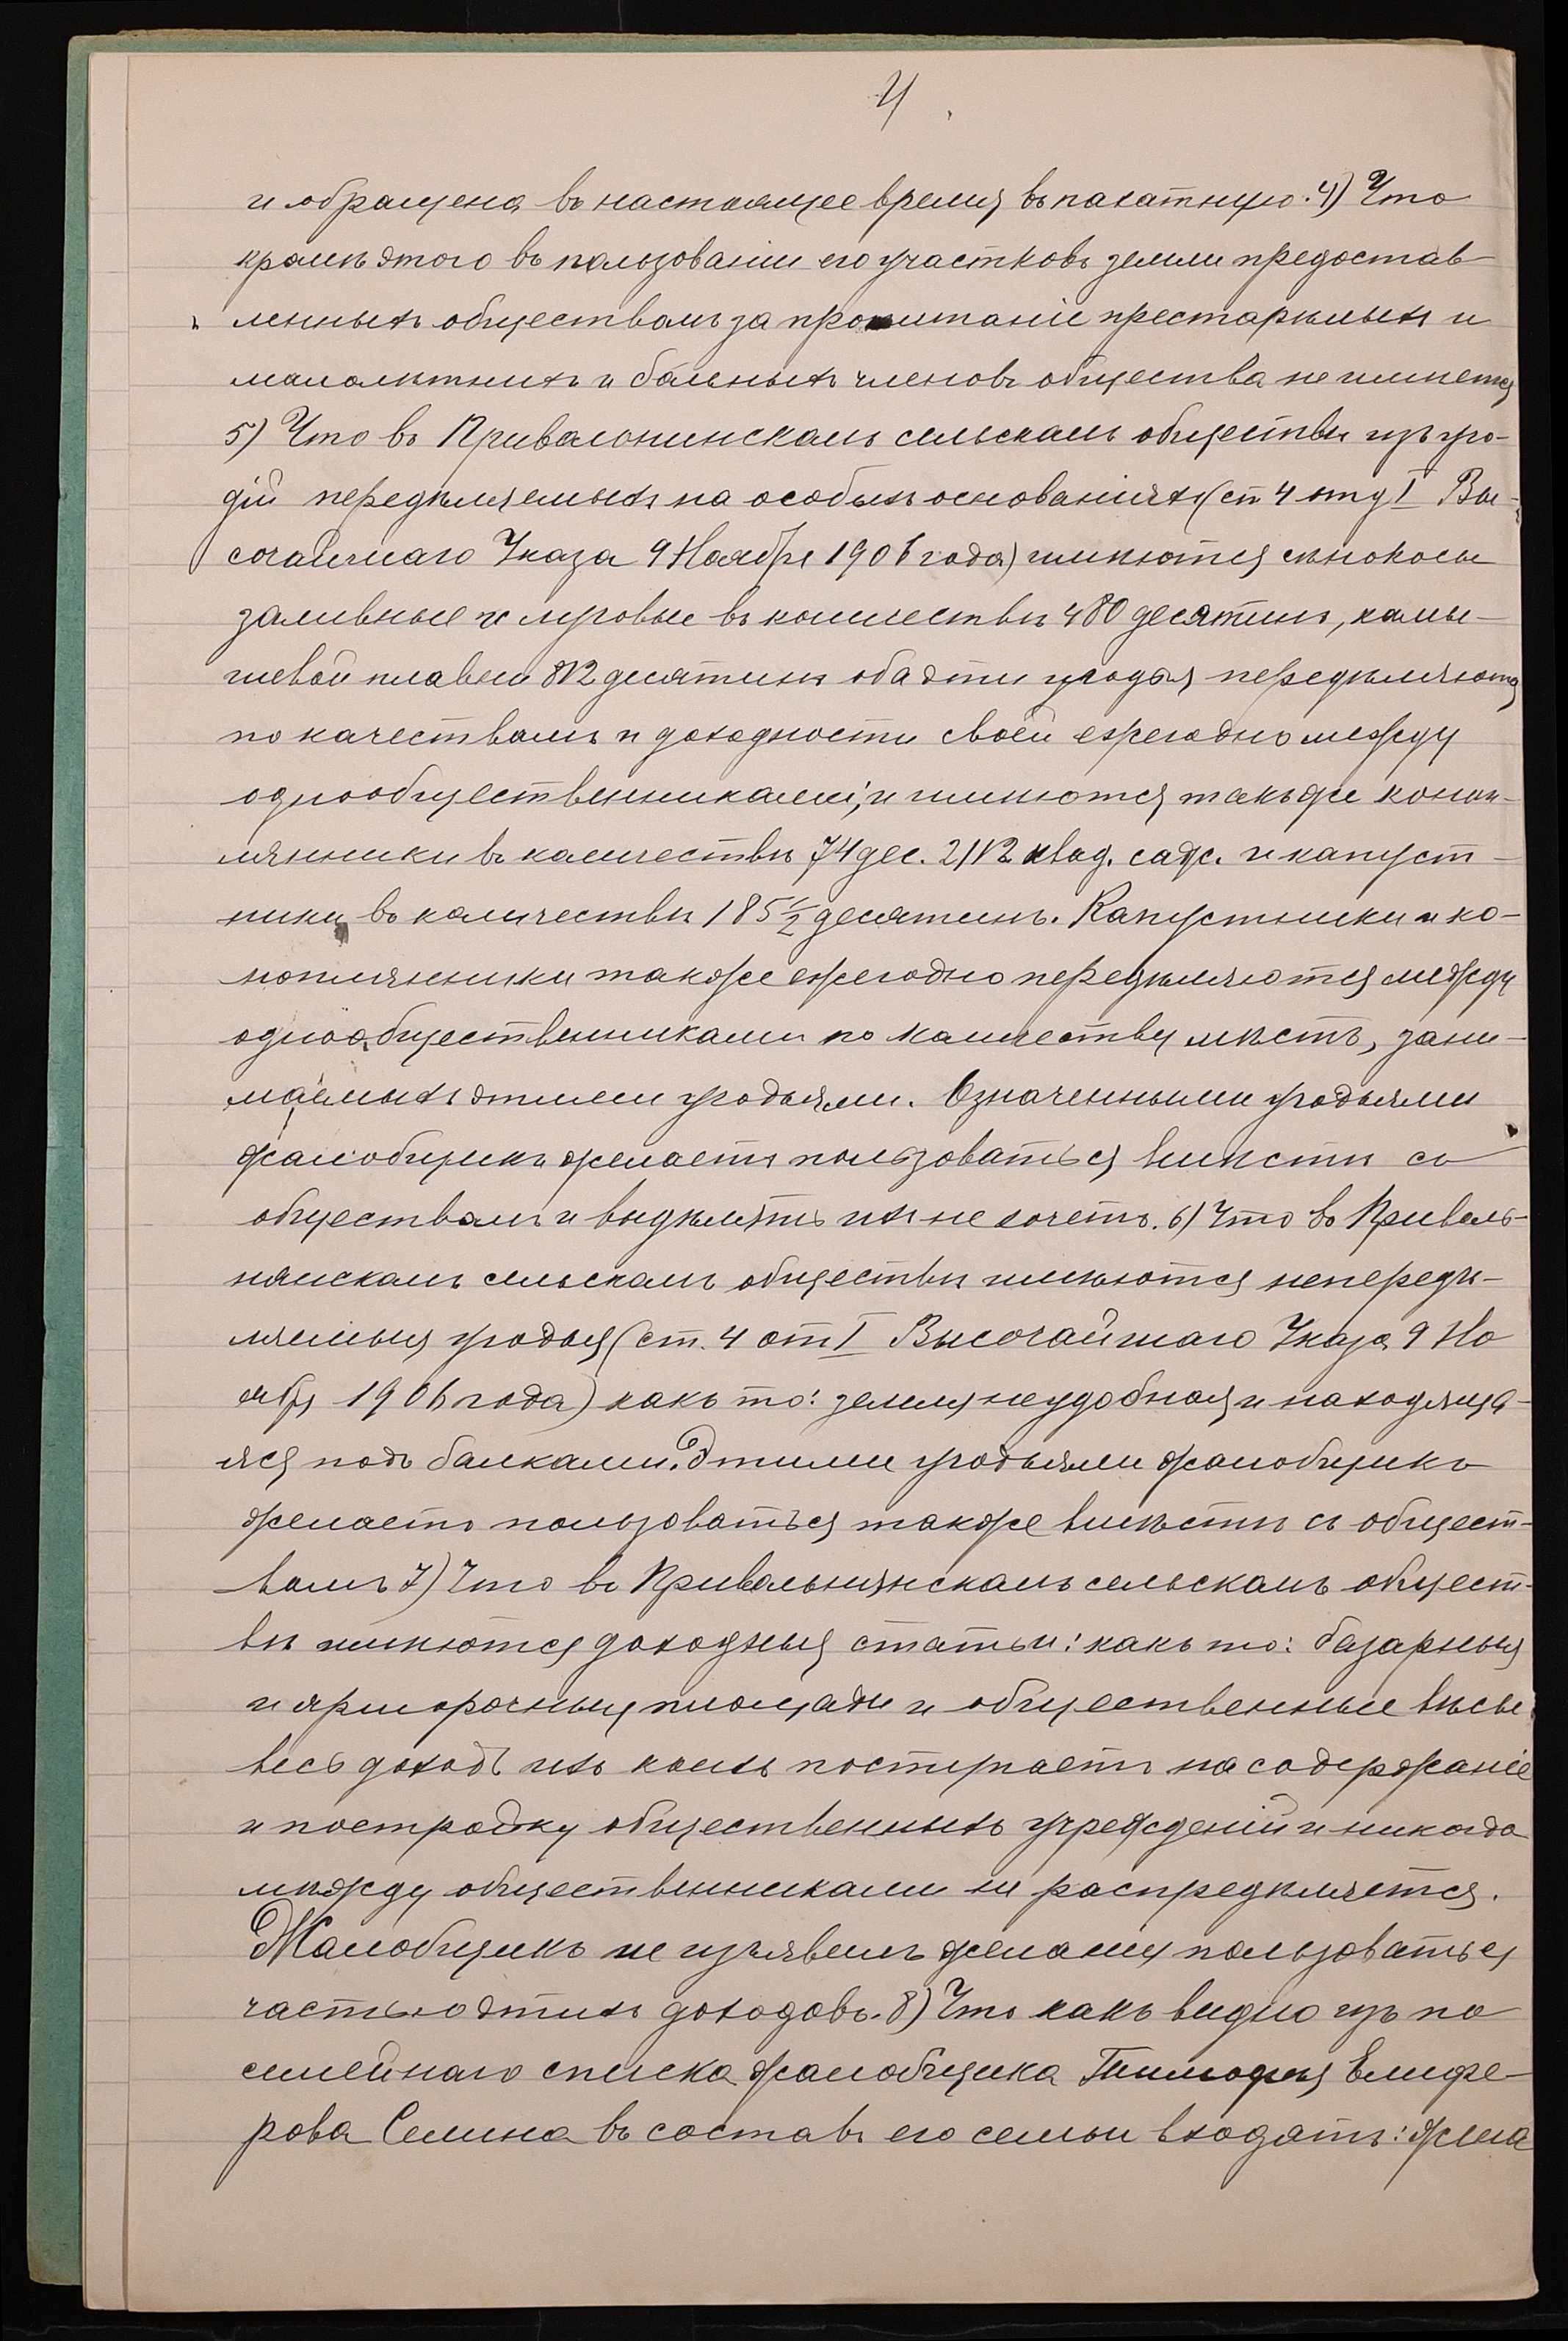 4
и обращена въ настоящее время въ пахатную. 4) Что
кромѣ этого въ пользованіи его участковъ земли предостав-
ленныхъ обществомъ за пропитаніе престарѣлыхъ и
малолѣтнихъ и больныхъ членовъ общества не имѣется
5) Что въ сельскомъ обществѣ изъ уго-
дій передѣляемыхъ на особыхъ основаніяхъ (ст 4 отд I Вы-
сочайшаго Указа 9 Ноября 1906 года) имѣются сѣнокосы
заливные и луговые въ количествѣ 480 десятинъ, камы-
шевой плавни 812 десятинъ оба эти угодья передѣляются
по качествамъ и доходности своей ежегодно между
однообщественниками, и имѣются также коноп-
лянники въ количествѣ 74 дес. 2112 квад. саж. и капуст-
ники въ количествѣ 185 1/2 десятинъ. Капустники и ко-
нопляники также ежегодно передѣляются между
однообщественниками по количеству мѣстъ, зани-
маемыхъ этими угодьями. Означенными угодьями
жалобщикъ желаетъ пользоваться вмѣстѣ съ
обществомъ и выдѣлять ихъ не хочетъ. 6) Что въ Приволь-
нянскомъ сельскомъ обществѣ имѣются непередѣ-
ляемыя угодья (ст. 4 от I Высочайшаго Указа 9 Но
ября 1906 года) какъ то: земля неудобная и находяща-
яся подъ балками. Этими угодьями жалобщикъ
желаетъ пользоваться также вмѣстѣ съ общест-
вомъ 7) Что въ Привольнянскомъ сельскомъ общест-
вѣ имѣются доходныя статьи: какъ то: базарныя
и ярморочныя площади и общественные вѣсы
весь доходъ ихъ коихъ поступаетъ на содержаніе
и постройку общественныхъ учрежденій и никогда
между общественниками не распредѣляется.
Жалобщикъ не изъявилъ желанія пользоваться
частью этихъ доходовъ. 8) Что какъ видно изъ по
семейнаго списка жалобщика Тимофея Елифе-
рова Селина въ составъ его семьи входятъ: жена